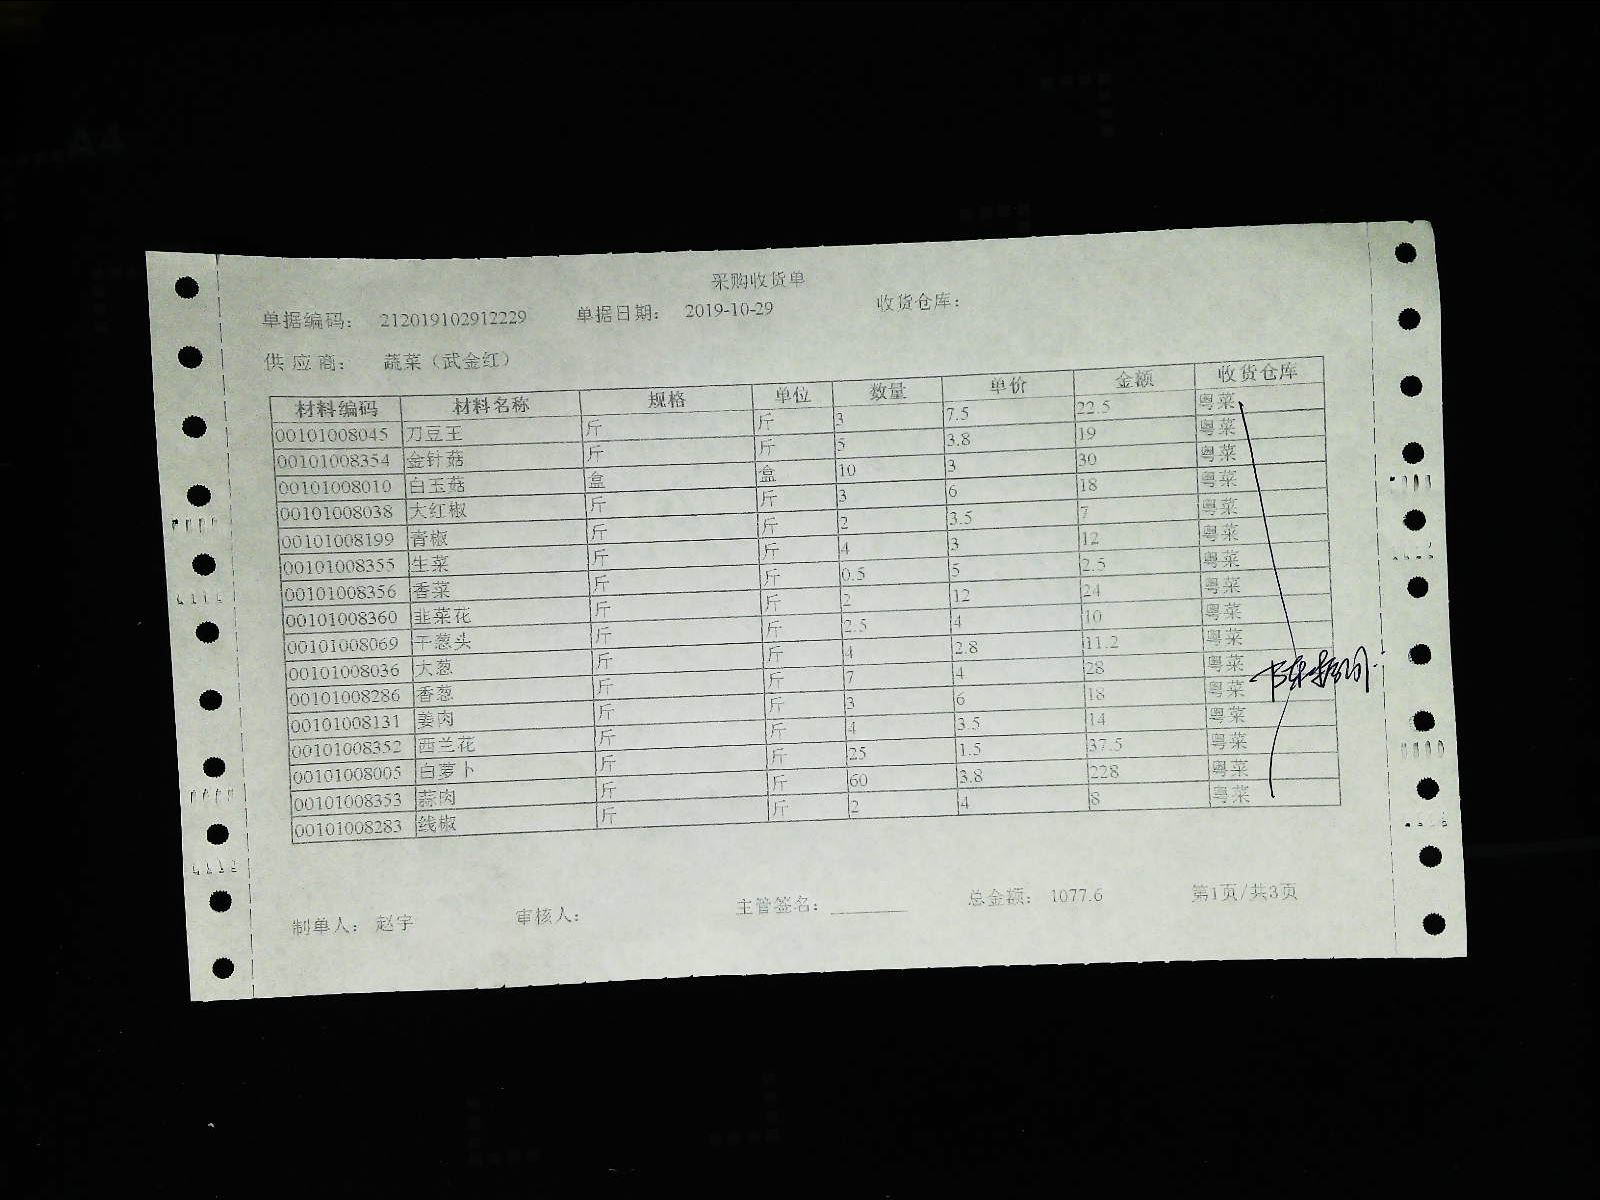 采购收货单
单据编码： 212019102912229 单据日期： 2019-10-29 收货仓库：
供应商： 蔬菜（武金红）
材料编码 材料名称 规格 单位 数量 单价 金额 收货仓库
00101008045 刀豆王 斤 斤 3 7.5 22.5 粤菜
00101008354 金针菇 斤 斤 5 3.8 19 粤菜
00101008010 白玉菇 盒 盒 10 3 30 粤菜
00101008038 大红椒 斤 斤 3 6 18 粤菜
00101008199 青椒 斤 斤 2 3.5 7 粤菜
00101008355 生菜 斤 斤 4 3 12 粤菜
00101008356 香菜 斤 斤 0.5 5 2.5 粤菜
00101008360 韭菜花 斤 斤 2 12 24 粤菜
00101008069 干葱头 斤 斤 2.5 4 10 粤菜
00101008036 大葱 斤 斤 4 2.8 11.2 粤菜
00101008286 香葱 斤 斤 7 4 28 粤菜
00101008131 姜肉 斤 斤 3 6 18 粤菜
00101008352 西兰花 斤 斤 4 3.5 14 粤菜
00101008005 白萝卜 斤 斤 25 1.5 37.5 粤菜
00101008353 蒜肉 斤 斤 60 3.8 228 粤菜
00101008283 线椒 斤 斤 2 4 8 粤菜
制单人： 赵宇 审核人： 主管签名： 总金额： 1077.6 第1页/共3页